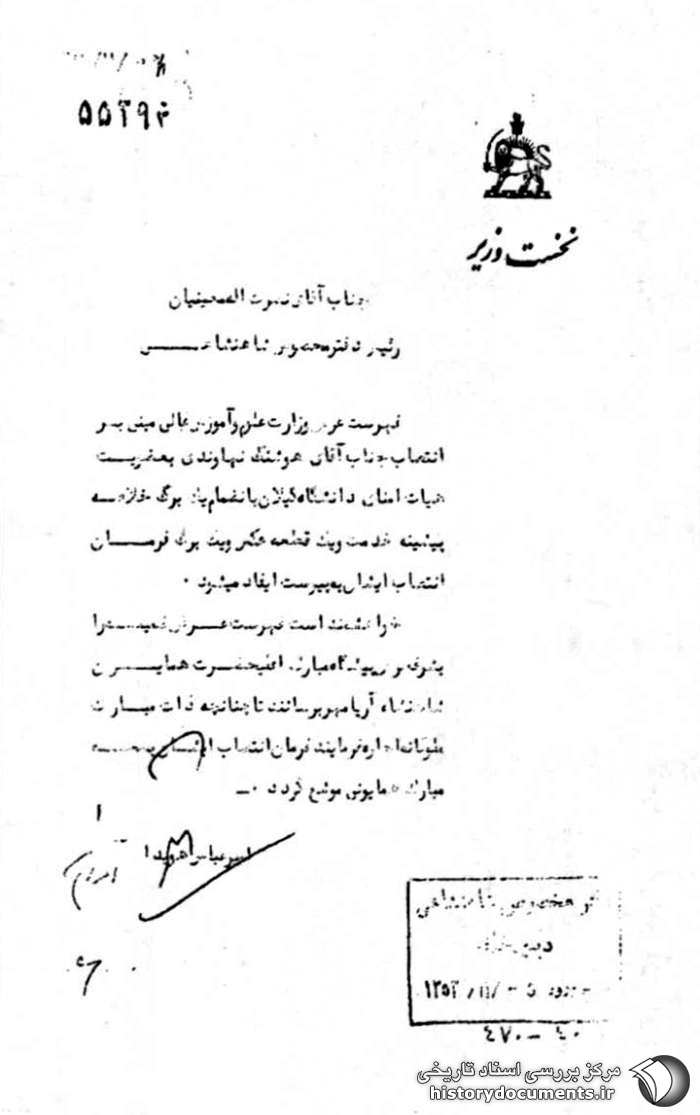 ۵۵۲۹۴
نخست وزیر
جناب آقای نصرت اله معینیان
رئیس دفتر مخصوص شاهنشاهی
فهرست عرض وزارت علوم و آموزش عالی مبنی بر
انتصاب جناب آقای هوشنگ نهاوندی بعضویت
هیات امنای دانشگاه گیلان بانضمام یک برگ خلاصه
پیشینه خدمت ویک قطعه عکس ویک برگ فرمان
انتصاب ایشان به پیوست ایفاد میشود ۰
خواهشمند است فهرست عرض ضمیمه را
بشرفعرض پیشگاه مبارک اعلیحضرت همایون
شاهنشاه آریامهر برسانند تا چنانچه ذات مبارک
ملوکانه اجازه فرمایند فرمان انتصاب ایشان بصحه
مبارک همایونی موشح گردد ۰
امیرعباس هویدا
دفتر مخصوص شاهنشاهی
دبیرخانه
ورود ۵ - /۱۱/ ۱۳۵۳
۴۰ - ۴۷۰
مرکز بررسی اسناد تاریخی
historydocuments.ir